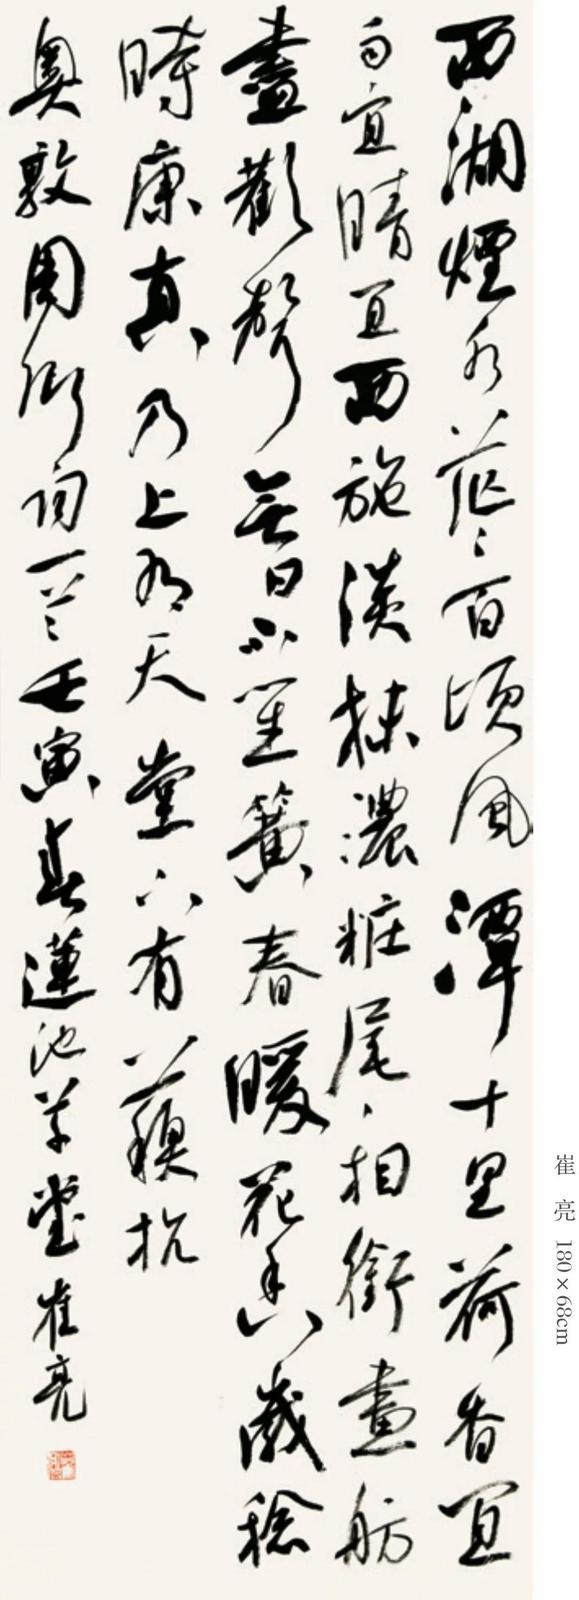 西湖煙水茫〻百頃風潭十里荷香宜
雨宜晴宜西施淡抹濃粧尾〻相銜畫舫
盡歡聲無日不笙簧春暖花香歲稔
時康真乃上有天堂下有蘇杭
奧敦周卿詞一首壬寅春蓮池草堂崔亮
崔 亮 180×68cm